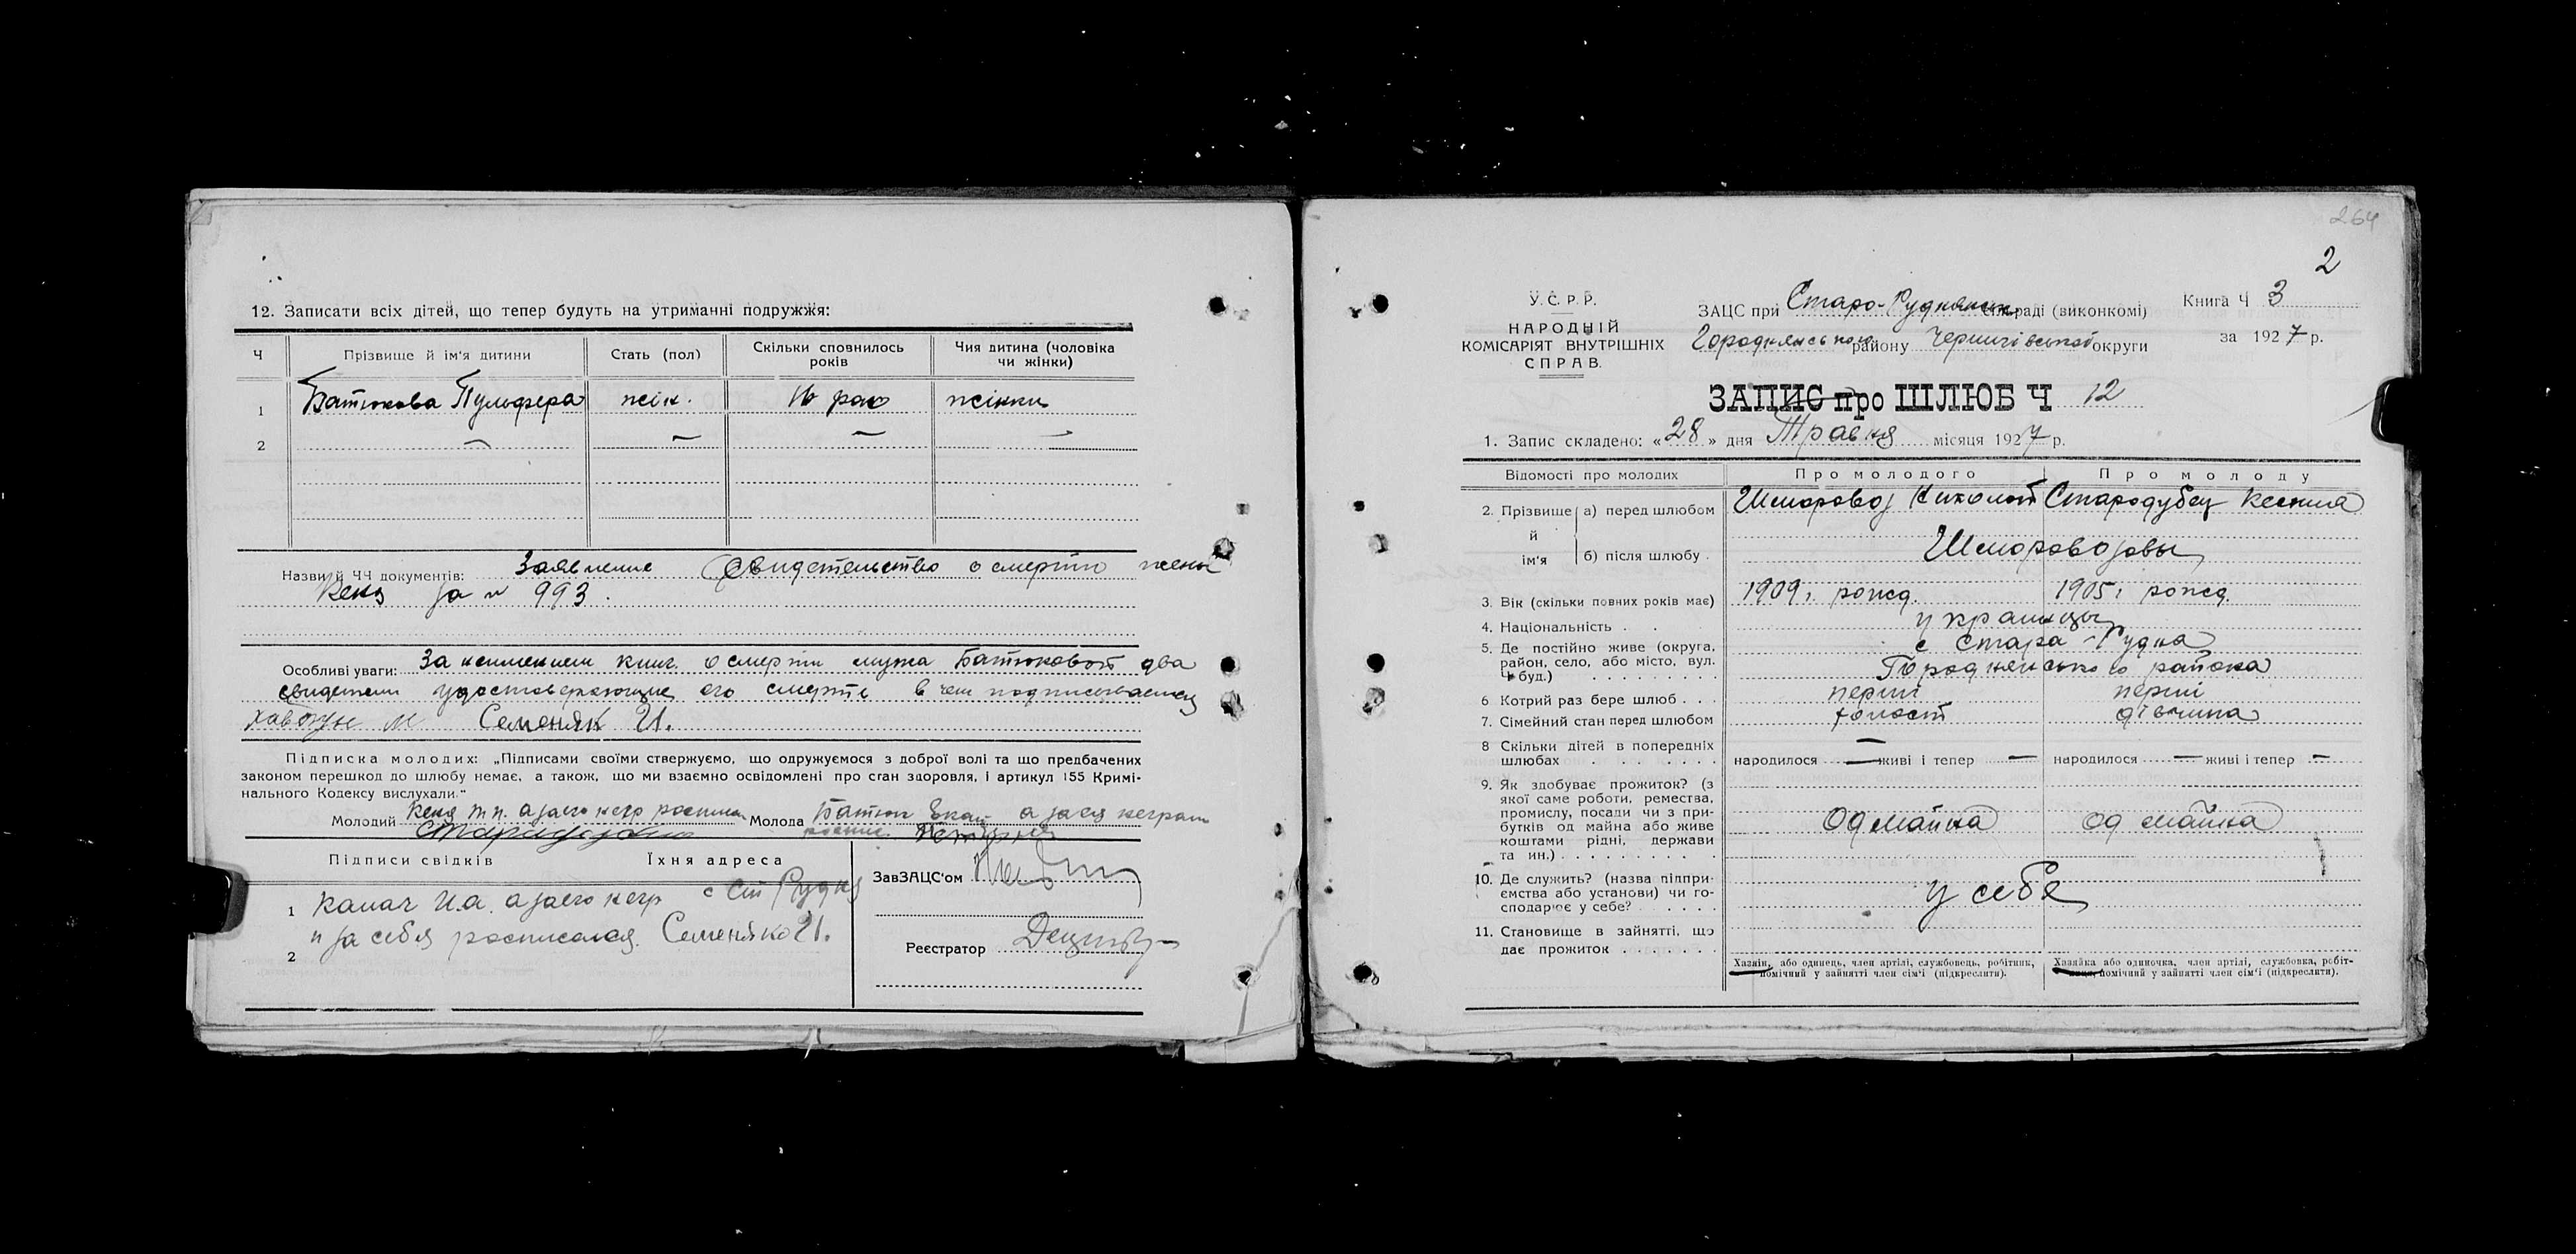 12. Записати всіх дітей, що тепер будуть на утриманні подружжя:
Ч Прізвище й ім'я дитини Стать (пол) Скільки сповнилось років Чия дитина (чоловіка чи жінки)
1 Батюкова Пульфера жін. 16 рок жінки
2 — — — —
Назви й ЧЧ документів: Заявление Свидетельство о смерти жены
за № 993.
Особливі уваги: За неимением книг. о смерти мужа Батюковой два
свидетели удостоверяющие его смерть в чем подписываемся
Семеняк И.
Підписка молодих: „Підписами своїми ствержуємо, що одружуємося з доброї волі та що предбачених
законом перешкод до шлюбу немає, а також, що ми взаємно освідомлені про стан здоровля, і артикул 155 Кримі-
нального Кодексу вислухали.“
Молодий а за его негр Молода Батюк а за ея неграм
Підписи свідків Їхня адреса
ЗавЗАЦС'ом
1 Калач И.А. а за его негр с Ст Рудня
2 и за себя росписался. Семеняко И.
Реєстратор
264
2
У. С. Р. Р.
НАРОДНІЙ
КОМІСАРІЯТ ВНУТРІШНІХ
СПРАВ.
ЗАЦС при Старо-Руднянск. раді (виконкомі)
Городнянського району Чернігівської округи
Книга Ч 3
за 1927 р.
ЗАПИС про ШЛЮБ Ч 12
1. Запис складено: «28» дня Травня місяця 1927 р.
Відомості про молодих Про молодого Про молоду
2. Прізвище й ім'я а) перед шлюбом Шморовоз Николай Стародубец Ксения
б) після шлюбу Шморовозовы
3. Вік (скільки повних років має) 1909 г. рожд. 1905 г. рожд.
4. Національність украинцы
5. Де постійно живе (округа, район, село, або місто, вул. й буд.) с Стара-Рудня
Городнянського района
6 Котрий раз бере шлюб . . . перший перший
7. Сімейний стан перед шлюбом холост дівчина
8 Скільки дітей в попередніх шлюбах народилося — живі і тепер — народилося — живі і тепер —
9. Як здобуває прожиток? (з
якої саме роботи, ремества,
промислу, посади чи з при-
бутків од майна або живе
коштами рідні, держави
та ин.) Од майна од майна
10. Де служить? (назва підпри-
ємства або установи) чи го-
сподарює у себе? у себе
11. Становище в зайнятті, що
дає прожиток
Хазяїн, або одинець, член артілі, службовець, робітник,
помічний у зайнятті член сім'ї (підкреслити).
Хазяйка або одиночка, член артілі, службовка, робіт-
ниця, помічний у зайнятті член сім'ї (підкреслити).